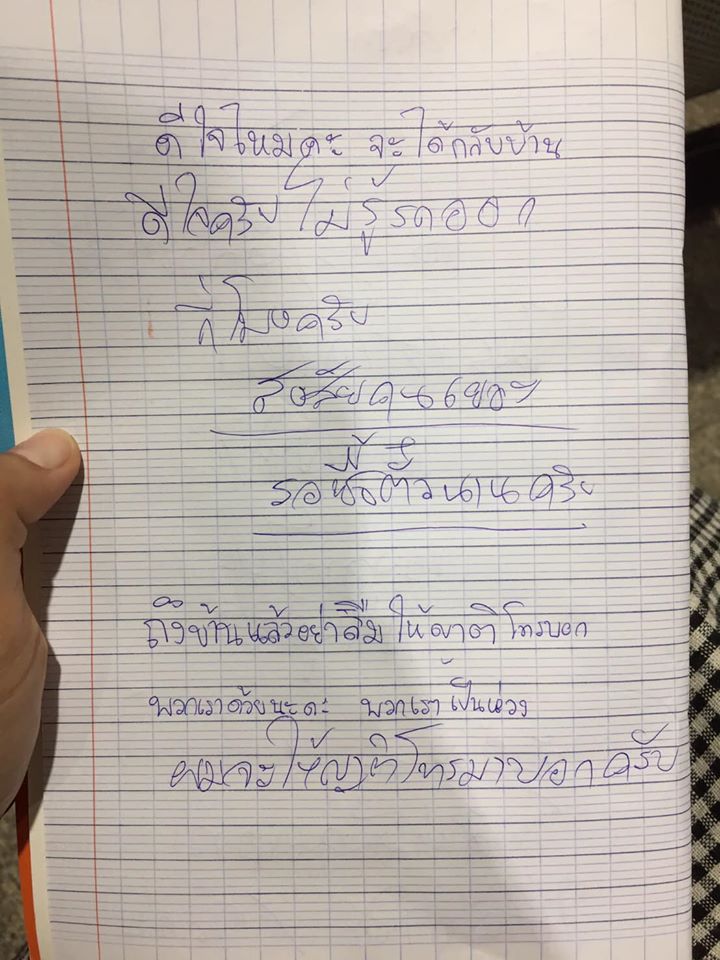 ดีใจไหมคะ จะได้กลับบ้าน
ดีใจครับ ไม่รู้รถออก
กี่โมงครับ
สงสัยคนเยอะ
รอซื้อตั๋วนานครับ
ถึงบ้านแล้วอย่าลืม ให้ญาติโทรบอก
พวกเราด้วยนะคะ พวกเราเป็นห่วง
ผมจะให้ญาติโทรมาบอกครับ